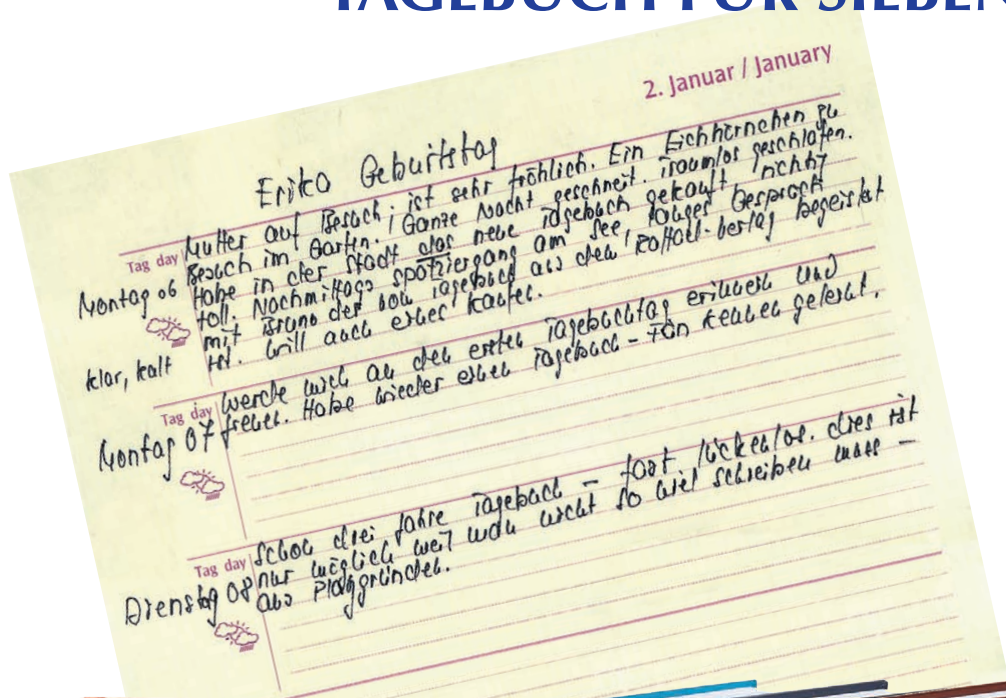 TAGEBUCH FÜR SIEBEN
2. Januar / January
Erika Geburtstag
Tag day
Montag 06
klar, kalt
Mutter auf Besuch; ist sehr fröhlich. Ein Eichhörnchen zu
Besuch im Garten. Ganze Nacht geschneit. Traumlos geschlafen.
Habe in der Stadt das neue Tagebuch gekauft richtig
toll. Nachmittags Spatziergang am See, langes Gespräch
mit Bruno der vom Tagebuch aus dem begeistert
ist. Will auch eines kaufen.
Tag day
Montag 07
Werde mich an den ersten Tagebuchtag erinnern und
freuen. Habe wieder einen Tagebuch-Fan kennen gelernt.
Tag day
Dienstag 08
Schon drei Jahre Tagebuch – fast lückenlos. dies ist
nur möglich weil man nicht so viel schreiben muss –
aus Platzgründen.